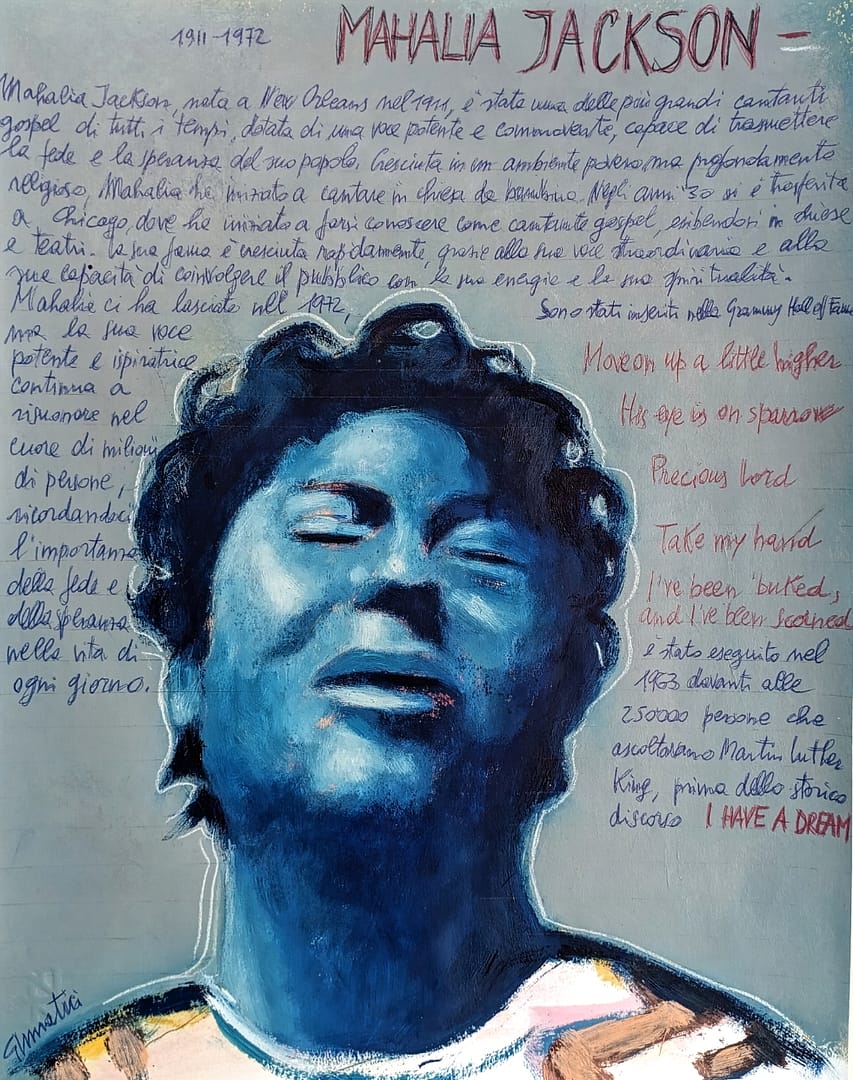 1911-1972
MAHALIA JACKSON -
Mahalia Jackson, nata a New Orleans nel 1911, è stata una delle più grandi cantanti
gospel di tutti i tempi, dotata di una voce potente e commovente, capace di trasmettere
la fede e la speranza del suo popolo. Cresciuta in un ambiente povero, ma profondamente
religioso, Mahalia ha iniziato a cantare in chiesa da bambina. Negli anni '30 si è trasferita
a Chicago, dove ha iniziato a farsi conoscere come cantante gospel, esibendosi in chiese
e teatri. La sua fama è cresciuta rapidamente, grazie alla sua voce straordinaria e alla
sua capacità di coinvolgere il pubblico con la sua energia e la sua spiritualità.
Mahalia ci ha lasciato nel 1972,
ma la sua voce
potente e ispiratrice
continua a
risuonare nel
cuore di milioni
di persone,
ricordandoci
l'importanza
della fede e
della speranza
nella vita di
ogni giorno.
Sono stati inseriti nella Grammy Hall of Fame
Move on up a little higher
His eye is on sparrow
Precious Lord
Take my hand
I've been 'buked,
and I've been scorned
è stato eseguito nel
1963 davanti alle
250000 persone che
ascoltavano Martin Luther
King, prima dello storico
discorso I HAVE A DREAM